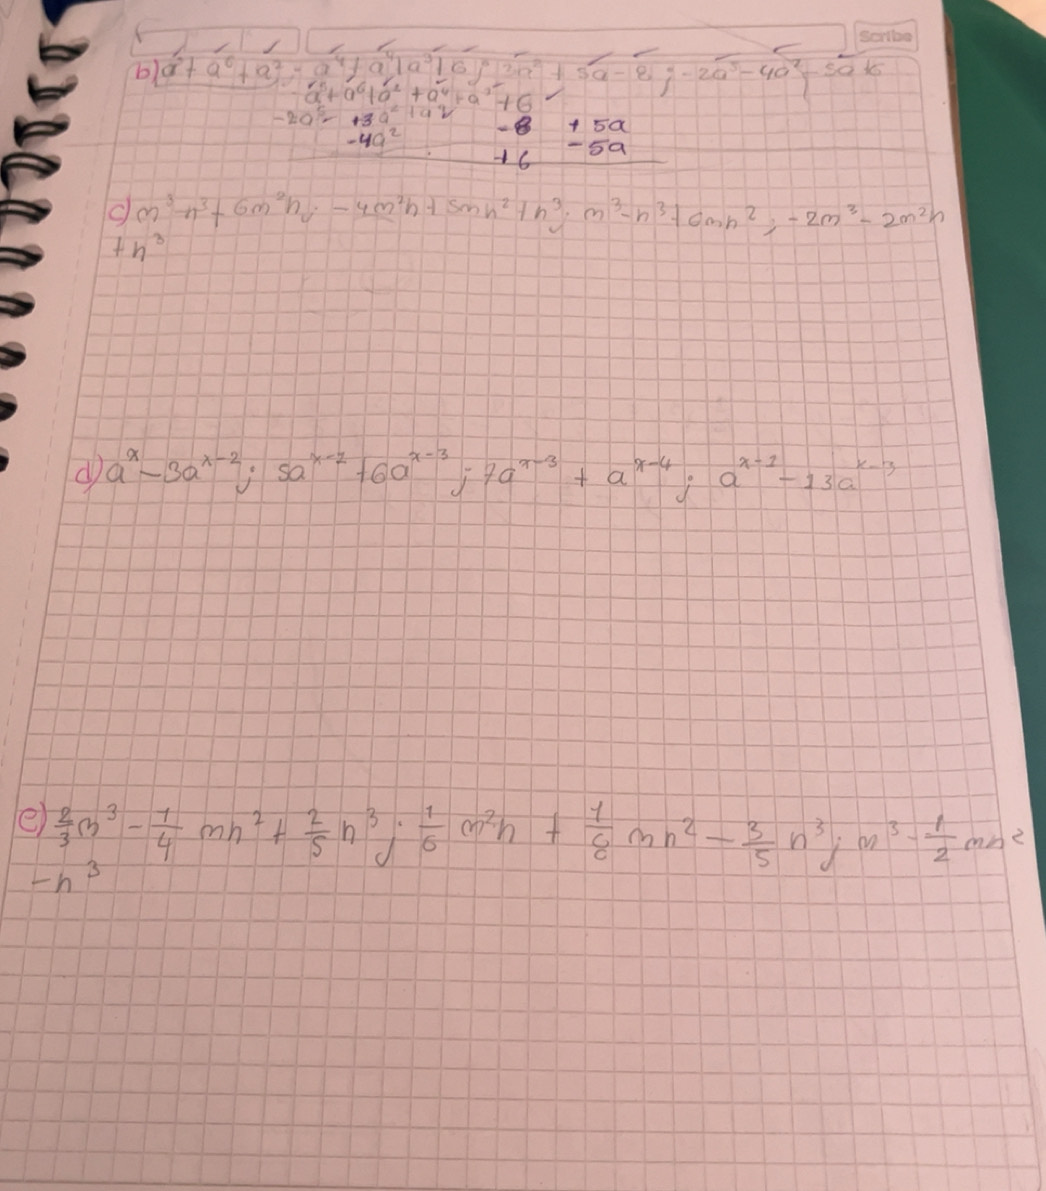 Scribe
b) a⁵ + a⁶ + a²; a⁴ + a³ + 6; 3a² + 5a - 8; -2a⁵ - 4a² - 5a + 6
a⁵ + a⁶ + a² + a⁴ + a³ + 6
-2a⁵ + 3a² + a² - 8 + 5a
-4a² + 6 - 5a
c) m³ - n³ + 6m²n; -4m²n + 5mn² + n³; m³ - n³ + 6mn²; -2m³ - 2m²n
+ n³
d) aˣ - 3aˣ⁻²; 5aˣ⁻¹ + 6aˣ⁻³; 7aˣ⁻³ + aˣ⁻⁴; aˣ⁻¹ - 13aˣ⁻³
e) 2/3 m³ - 1/4 mn² + 2/5 n³; 1/6 m²n + 1/8 mn² - 3/5 n³; m³ - 1/2 mn²
- n³